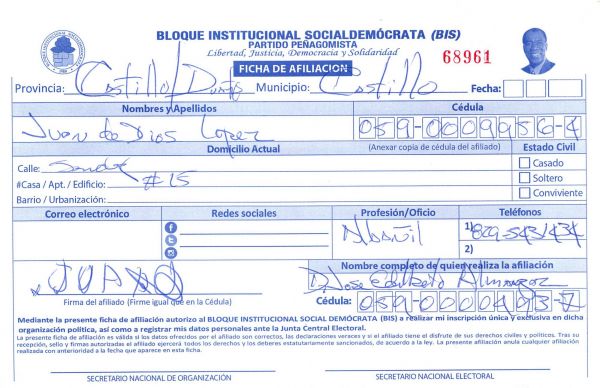 BLOQUE INSTITUCIONAL SOCIALDEMÓCRATA (BIS)
PARTIDO PEÑAGOMISTA
Libertad, Justicia, Democracia y Solidaridad
68961
FICHA DE AFILIACION
Provincia: Castillo/Duarte Municipio: Castillo Fecha:
Nombres y Apellidos Cédula
Juan de Dios Lopez 059-0009956-4
Domicilio Actual (Anexar copia de cédula del afiliado) Estado Civil
Calle: Casado
#Casa / Apt. / Edificio: #15 Soltero
Barrio / Urbanización: Conviviente
Correo electrónico Redes sociales Profesión/Oficio Teléfonos
Albañil 1) 829-5431434
2)
JUANO Nombre completo de quien realiza la afiliación
D. Jose Almanzar
Firma del afiliado (Firme igual que en la Cédula) Cédula: 059-0000493-7
Mediante la presente ficha de afiliación autorizo al BLOQUE INSTITUCIONAL SOCIAL DEMÓCRATA (BIS) a realizar mi inscripción única y exclusiva en dicha
organización política, así como a registrar mis datos personales ante la Junta Central Electoral.
La presente ficha de afiliación es válida si los datos ofrecidos por el afiliado son correctos, las declaraciones veraces y si el afiliado tiene el disfrute de sus derechos civiles y políticos. Tras su
recepción, sello y firmas autorizadas el afiliado ejercerá todos los derechos y los deberes estatutariamente sancionados, de acuerdo a la ley. La presente afiliación anula cualquier afiliación
realizada con anterioridad a la fecha que aparece en esta ficha.
SECRETARIO NACIONAL DE ORGANIZACIÓN SECRETARIO NACIONAL ELECTORAL